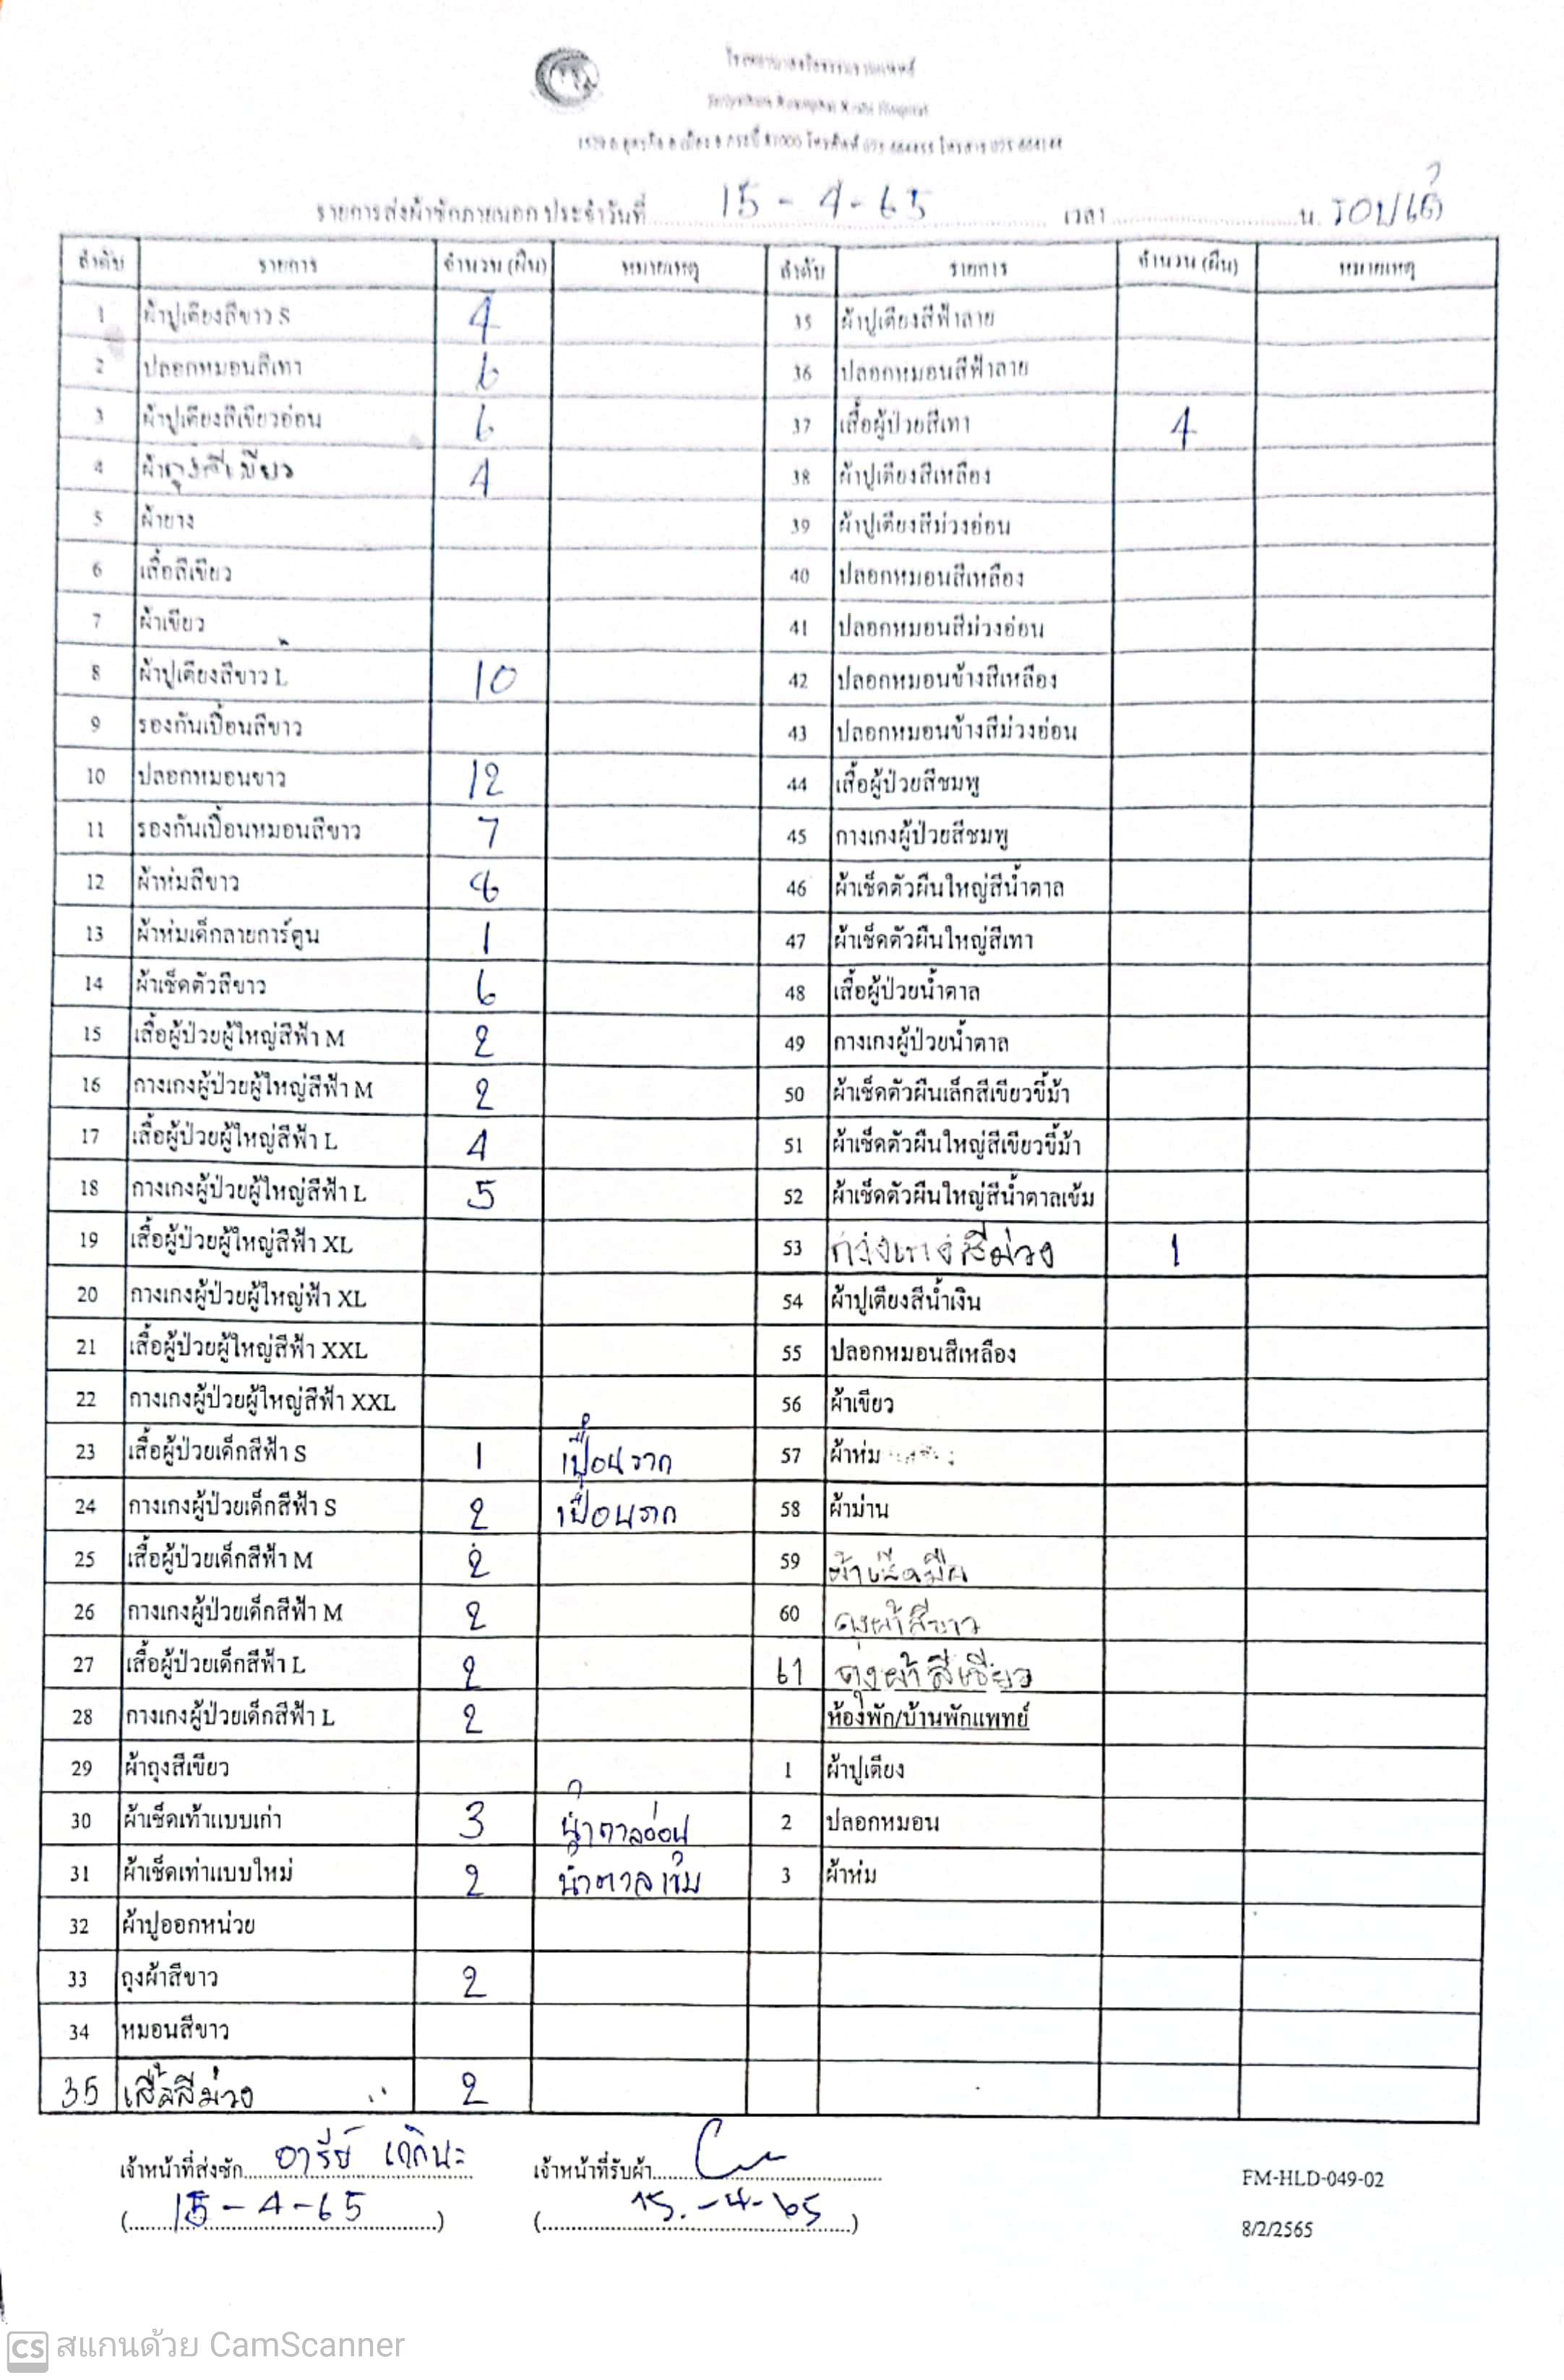 รายการส่งผ้าซักภายนอก ประจำวันที่ 15-4-65 เวลา น.
ลำดับ รายการ จำนวน (ผืน) หมายเหตุ ลำดับ รายการ จำนวน (ผืน) หมายเหตุ
1 ผ้าปูเตียงสีขาว S 4 35 ผ้าปูเตียงสีฟ้าลาย
2 ปลอกหมอนสีเทา 6 36 ปลอกหมอนสีฟ้าลาย
3 ผ้าปูเตียงสีเขียวอ่อน 6 37 เสื้อผู้ป่วยสีเทา 4
4 ผ้าถุงสีเขียว 4 38 ผ้าปูเตียงสีเหลือง
5 ผ้ายาง 39 ผ้าปูเตียงสีม่วงอ่อน
6 เสื้อสีเขียว 40 ปลอกหมอนสีเหลือง
7 ผ้าเขียว 41 ปลอกหมอนสีม่วงอ่อน
8 ผ้าปูเตียงสีขาว L 10 42 ปลอกหมอนข้างสีเหลือง
9 รองกันเปื้อนสีขาว 43 ปลอกหมอนข้างสีม่วงอ่อน
10 ปลอกหมอนขาว 12 44 เสื้อผู้ป่วยสีชมพู
11 รองกันเปื้อนหมอนสีขาว 7 45 กางเกงผู้ป่วยสีชมพู
12 ผ้าห่มสีขาว 46 ผ้าเช็ดตัวผืนใหญ่สีน้ำตาล
13 ผ้าห่มเด็กลายการ์ตูน 1 47 ผ้าเช็ดตัวผืนใหญ่สีเทา
14 ผ้าเช็ดตัวสีขาว 6 48 เสื้อผู้ป่วยน้ำตาล
15 เสื้อผู้ป่วยผู้ใหญ่สีฟ้า M 2 49 กางเกงผู้ป่วยน้ำตาล
16 กางเกงผู้ป่วยผู้ใหญ่สีฟ้า M 2 50 ผ้าเช็ดตัวผืนเล็กสีเขียวขี้ม้า
17 เสื้อผู้ป่วยผู้ใหญ่สีฟ้า L 4 51 ผ้าเช็ดตัวผืนใหญ่สีเขียวขี้ม้า
18 กางเกงผู้ป่วยผู้ใหญ่สีฟ้า L 5 52 ผ้าเช็ดตัวผืนใหญ่สีน้ำตาลเข้ม
19 เสื้อผู้ป่วยผู้ใหญ่สีฟ้า XL 53 กางเกงสีม่วง 1
20 กางเกงผู้ป่วยผู้ใหญ่ฟ้า XL 54 ผ้าปูเตียงสีน้ำเงิน
21 เสื้อผู้ป่วยผู้ใหญ่สีฟ้า XXL 55 ปลอกหมอนสีเหลือง
22 กางเกงผู้ป่วยผู้ใหญ่สีฟ้า XXL 56 ผ้าเขียว
23 เสื้อผู้ป่วยเด็กสีฟ้า S 1 เปื้อนราก 57 ผ้าห่ม
24 กางเกงผู้ป่วยเด็กสีฟ้า S 2 เปื้อนราก 58 ผ้าม่าน
25 เสื้อผู้ป่วยเด็กสีฟ้า M 2 59 ผ้าเช็ดมือ
26 กางเกงผู้ป่วยเด็กสีฟ้า M 2 60 ถุงผ้าสีขาว
27 เสื้อผู้ป่วยเด็กสีฟ้า L 2 61 ถุงผ้าสีเขียว
28 กางเกงผู้ป่วยเด็กสีฟ้า L 2 ห้องพัก/บ้านพักแพทย์
29 ผ้าถุงสีเขียว 1 ผ้าปูเตียง
30 ผ้าเช็ดเท้าแบบเก่า 3 น้ำตาลอ่อน 2 ปลอกหมอน
31 ผ้าเช็ดเท่าแบบใหม่ 2 น้ำตาลเข้ม 3 ผ้าห่ม
32 ผ้าปูออกหน่วย
33 ถุงผ้าสีขาว 2
34 หมอนสีขาว
35 เสื้อสีม่วง 2
เจ้าหน้าที่ส่งซัก อารีย์ เจ้าหน้าที่รับผ้า
(15-4-65) (15.-4-65)
FM-HLD-049-02
8/2/2565
CS สแกนด้วย CamScanner